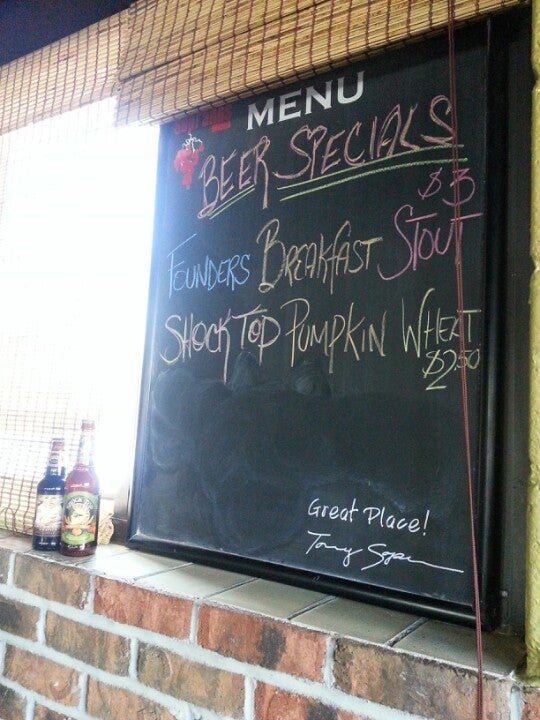 MENU
BEER SPECIALS
$3
FOUNDERS BREAKFAST STOUT
SHOCK TOP PUMPKIN WHEAT
$2.50
Great Place!
Tony